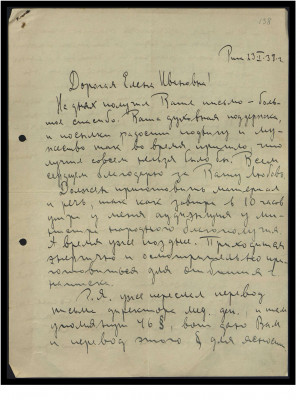 138
Рига 13 II-39 г.
Дорогая Елена Ивановна!
На днях получил Ваше письмо – боль-
шое спасибо. Ваша духовная поддержка,
и посылки радости подвигу и му-
жество так во время, пришло, что
лучше совсем нельзя было бы. Всем
сердцем благодарю за Вашу любовь.
Должен приготовить материал
и речь, так как завтра в 10 часов
утра у меня аудиенция у ми-
нистра народного благополучия
А время уже поздно. Приходится
энергично и осмотрительно при-
готовиться для отбития
натиска.
Г.Я. уже переслал перевод
письма директора мед. деп. и там
упомянут 46 §, вот даю Вам
и перевод этого § для ясности